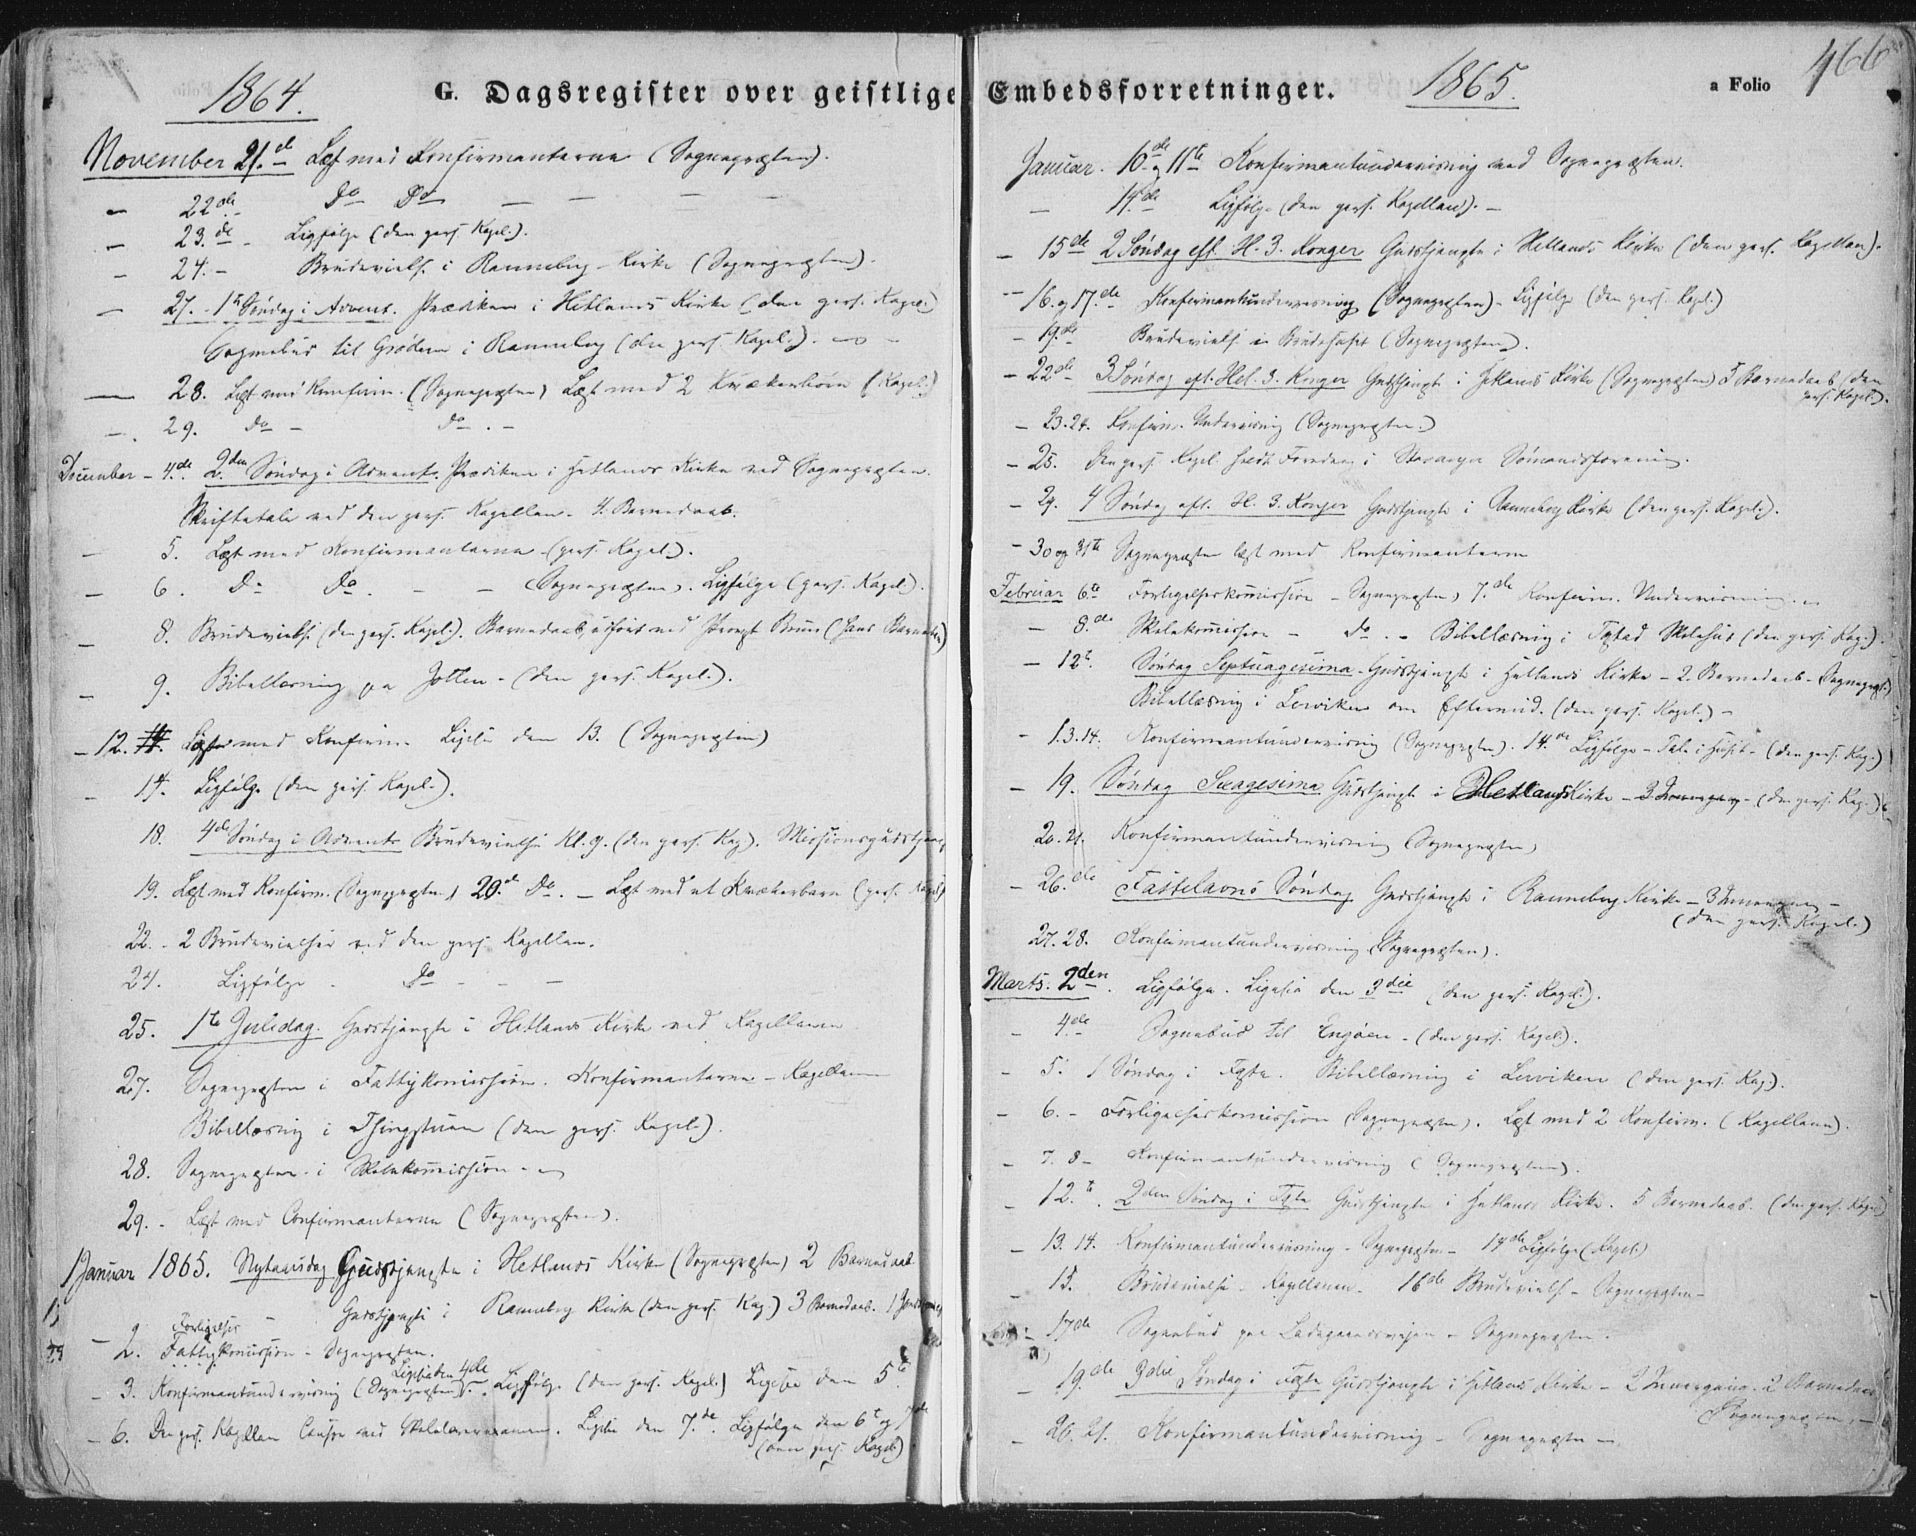 1864.
G. Dagsregister over geistlige
November 21.de Læst med Konfirmanterne (Sognepræsten).
— 22de Do Do — — — —
— 23.de - Ligfølge (den pers. Kapel.).
— 24. - Brudevielse i Ranneberg Kirke (Sognepræsten).
— 27. - 1ste Søndag i Advent. Prædiken i Hetlands Kirke (den pers. Kapel.)
Sognebud til Grødem i Ranneberg (den pers. Kapel.).
— 28. Læst med Konfirm. (Sognepræsten) Læst med 2 Kvækerbørn (Kapel.)
—. 29. Do - Do. -
December - 4.de 2den Søndag i Advent. Prædiken i Hetlands Kirke ved Sognepræsten.
Skriftetale ved den pers. Kapellan. 4. Barnedaab.
— 5. Læst med Konfirmanterne (pers. Kapel.).
— 6. Do Do. - - (Sognepræsten). Ligfølge (pers. Kapel.).
— 8. Brudevielse (den pers. Kapel.). Barnedaab, udført ved Provst Bruun (hans Barnebarn)
— 9. Bibellæsning paa (den pers. Kapel.).
— 12. Læst med Konfirm. den 13. (Sognepræsten)
— 14. Ligfølge (den pers. Kapel.).
18. 4de Søndag i Advent Brudevielse Kl. 9. (den pers. Kap). Missionsgudstjen
19. Læst med Konfirm. (Sognepræsten) 20.de Do. - Læst med et Kvækerbarn (pers. Kapel)
22. - 2 Brudevielser ved den pers. Kapellan.
24. Ligfølge - Do - - -
25. 1ste Juledag. Gudstjeneste i Hetlands Kirke ved Kapellanen
27. Sognepræsten i Fattigkomission. Konfirmanterne - Kapellanen
Bibellæsning i Thingstuen (den pers. Kapel.).
28. Sognepræsten i Skolekommission
29. - Læst med Confirmanterne (Sognepræsten).
1 Januar 1865. Nytaarsdag Gudstjeneste i Hetlands Kirke (Sognepræsten) 2 Barnedaab
— - Gudstjeneste i Ranneberg Kirke (den pers. Kap.) 3 Barnedaab.
Forligelses
— 2. Fattigkomission - Sognepræsten.
den 4de
— 3. Konfirmantundervisning (Sognepræsten). Ligfølge (den pers. Kapel.) den 5te
— 6. Den pers. Kapellan Censor ved Skolelærerexamen. den 7.de Ligfølge den 6te og 7de
(den pers. Kapel.)
Embedsforretninger.
1865.
a Folio
466
Januar. 10de og 11te Konfirmantundervisning ved Sognepræsten.
— 14.de Ligfølge (den pers. Kapellan). -
— 15de 2 Søndag eft. H. 3. Konger Gudstjeneste i Hetlands Kirke (den pers. Kapellan).
— 16. og 17.de Konfirmantundervisning (Sognepræsten) - Ligfølge (den pers. Kapel.)
— 19.de Brudevielse i Brudehuset (Sognepræsten).
— 22de 3 Søndag eft. Hel. 3. Konger Gudstjeneste i Hetlands Kirke (Sognepræsten) 3 Barnedaab (den
pers. Kapel.).
— 23. 24. Konfirm. Undervisning (Sognepræsten.)
— 25. Den pers. Kapel. holdt Foredrag i Stavanger Sømandsforening.
— 29. 4 Søndag eft. H. 3. Konger Gudstjeneste i Ranneberg Kirke (den pers. Kapel.).
— 30 og 31te Sognepræsten læst med Konfirmanterne
Februar 6te Forligelseskommission - Sognepræsten, 7.de Konfirm. Undervisning.
— 8.de Skolekommission - Do. - Bibellæsning i Skolehus (den pers. Kap.).
— 12te. Søndag Septuagesima. Gudstjeneste i Hetlands Kirke - 2. Barnedaab - Sognepræst.)
Bibellæsning i Lervigen om Eftermid. (den pers. Kapel.) -
— 13. 14. Konfirmantundervisning (Sognepræsten). 14.de Ligfølge - Tale i Huset - (den pers. Kap.)
— 19. Søndag Sexagesima Gudstjeneste i Hetlands Kirke - (den pers. Kap.)
20. 21. Konfirmantundervisning (Sognepræsten)
— 26.de Fastelavns Søndag Gudstjeneste i Ranneberg Kirke -
(den pers. Kapel.)
27. 28. Konfirmantundervisning (Sognepræsten).
Marts. 2den. Ligfølge. den 3die (den pers. Kapel.).
— 4.de Sognebud til Engøen - (den pers. Kapel.).
— 5. 1 Søndag i Faste. Bibellæsning i Lerviken (den pers. Kap).
— 6. - Forligelseskomission (Sognepræsten). Læst med 2 Konfirm. (Kapellanen).
— 7. 8 - Konfirmantundervisning (Sognepræsten).
— 12.te. 2den Søndag i Faste Gudstjeneste i Hetlands Kirke. 5 Barnedaab. (den pers. Kapel)
— 13. 14. Konfirmantundervisning - Sognepræsten - 14de Ligfølge (Kapel.)
— 15. Brudevielse - Kapellanen. 16de Brudevielse - Sognepræsten -
— 17de Sognebud paa Ladegaardsveien - Sognepræsten.
— 19.de 3die Søndag i Faste Gudstjeneste i Hetlands Kirke - 2 Barnedaab
Sognepræsten. -
— 20. 21. Konfirmantundervisning - Sognepræsten -